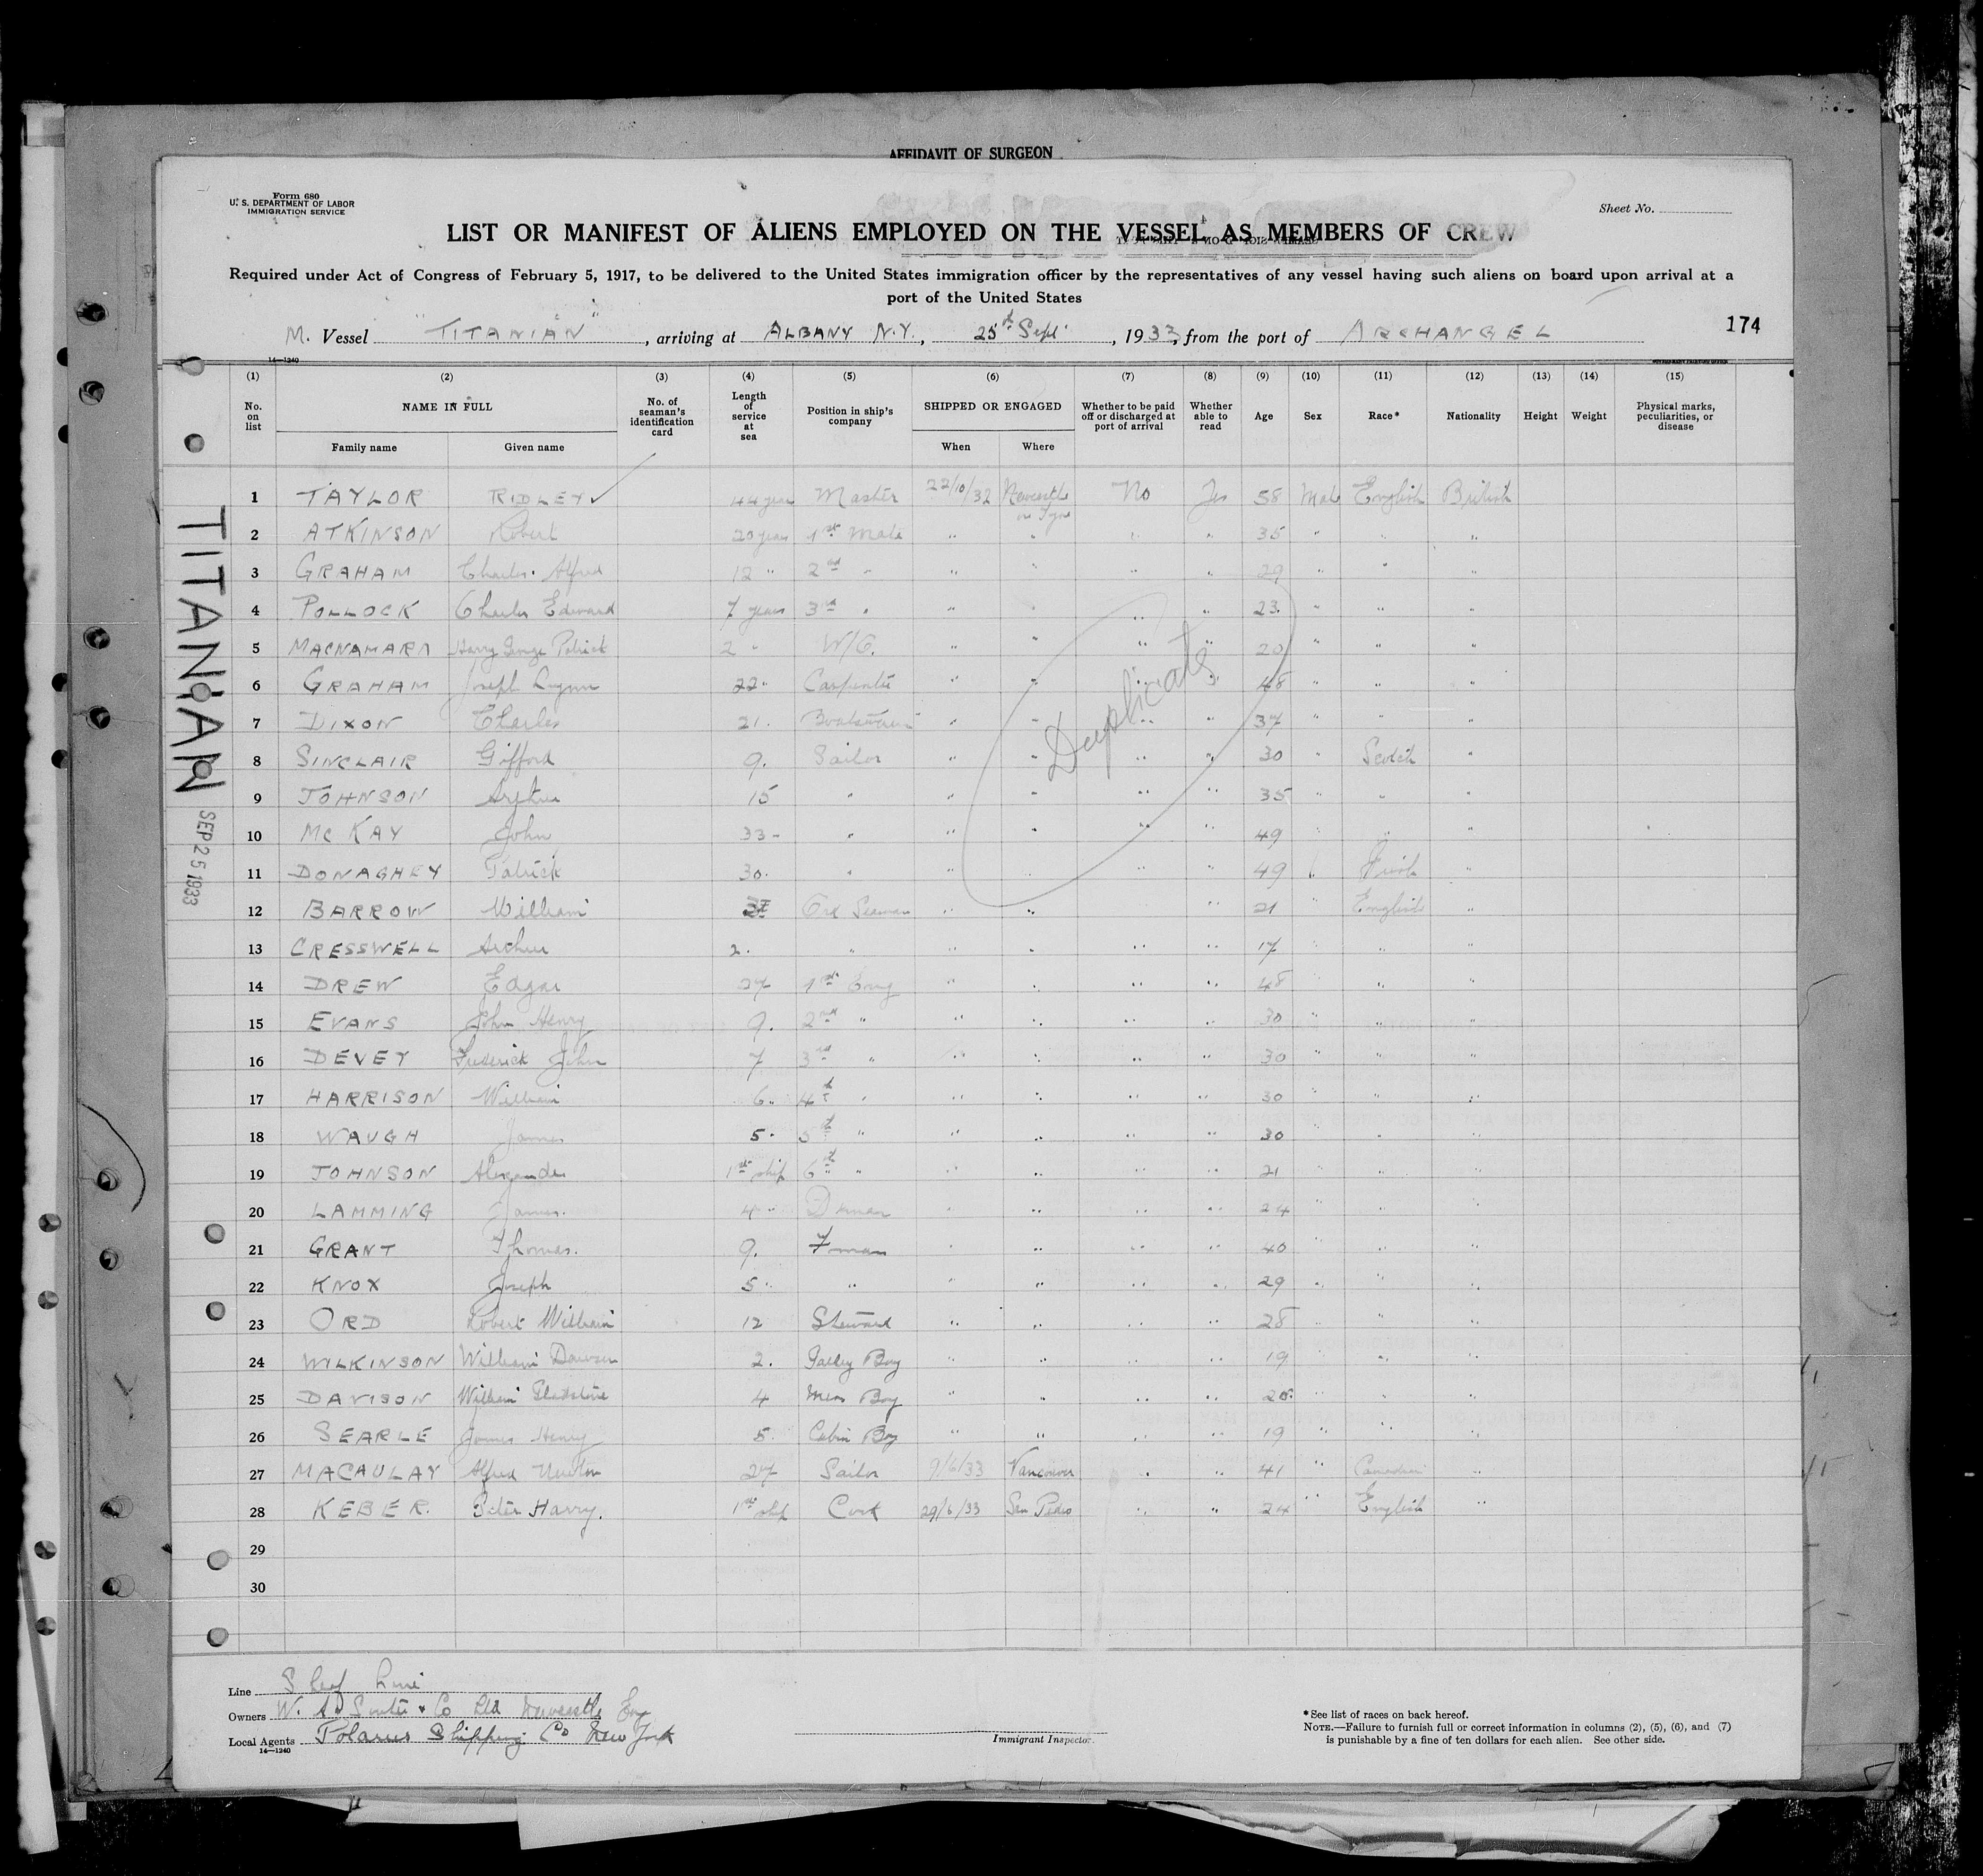 AFFIDAVIT OF SURGEON
Form 680
U. S. DEPARTMENT OF LABOR
IMMIGRATION SERVICE
Sheet No.
LIST OR MANIFEST OF ALIENS EMPLOYED ON THE VESSEL AS MEMBERS OF CREW
Required under Act of Congress of February 5, 1917, to be delivered to the United States immigration officer by the representatives of any vessel having such aliens on board upon arrival at a
port of the United States
M. Vessel "TITANIAN", arriving at ALBANY N.Y., 25th Sept, 1933, from the port of ARCHANGEL
174
14—1240
(1) (2) (3) (4) (5) (6) (7) (8) (9) (10) (11) (12) (13) (14) (15)
No. on list NAME IN FULL No. of seaman's identification card Length of service at sea Position in ship's company SHIPPED OR ENGAGED Whether to be paid off or discharged at port of arrival Whether able to read Age Sex Race* Nationality Height Weight Physical marks, peculiarities, or disease
Family name Given name When Where
1 TAYLOR RIDLEY ✓ 44 year Master 22/10/32 Newcastle on Tyne No Yes 58 Male English British
2 ATKINSON Robert 20 years 1st Mate " " " " 35 " " "
3 GRAHAM Charles Alfred 12 " 2nd " " " " " 29 " " "
4 POLLOCK Charles Edward 7 years 3rd " " " " " 23 " " "
5 MACNAMARA Harry George Patrick 2 " W/O. " " " " 20 " " "
6 GRAHAM Joseph 22 " Carpenter " " " " 48 " " "
7 DIXON Charles 21 " Boatswain " " " " 37 " " "
8 SINCLAIR Gifford 9 " Sailor " " " " 30 " Scotch "
9 JOHNSON Arthur 15 " " " " " 35 " " "
10 MC KAY John 33 " " " " " " 49 " " "
11 DONAGHEY Patrick 30 " " " " " " 49 " Irish "
12 BARROW William Ord Seaman " " " " 21 " English "
13 CRESSWELL Arthur 2 " " " " " " 17 " " "
14 DREW Edgar 27 1st Eng " " " " 48 " " "
15 EVANS John Henry 9 " 2nd " " " " " 30 " " "
16 DEVEY Frederick John 7 3rd " " " " " 30 " " "
17 HARRISON William 6 " 4th " " " " " 30 " " "
18 WAUGH James 5 " 5th " " " " " 30 " " "
19 JOHNSON Alexander 1st ship 6th " " " " " 21 " " "
20 LAMMING James 4 " Dman " " " " 24 " " "
21 GRANT Thomas. 9 " Fman " " " " 40 " " "
22 KNOX Joseph 5 " " " " " " 29 " " "
23 ORD Robert William 12 Steward " " " " 28 " " "
24 WILKINSON William Dawson 2 " Galley Boy " " " " 19 " " "
25 DAVISON William Gladstone 4 Mess Boy " " " " 20 " " "
26 SEARLE James Henry 5 " Cabin Boy " " " " 19 " " "
27 MACAULAY Alfred Newton 27 Sailor 9/6/33 Vancouver " " 41 " Canadian "
28 KEBER. Peter Harry. 1st ship Cook 29/6/33 San Pedro " " 24 " English "
29
30
Duplicate
TITANIAN
SEP 25 1933
Line Sheaf Line
Owners W. A. Souter & Co Ltd Newcastle Eng
Local Agents Polarus Shipping Co New York
14—1240
Immigrant Inspector.
*See list of races on back hereof.
NOTE.—Failure to furnish full or correct information in columns (2), (5), (6), and (7)
is punishable by a fine of ten dollars for each alien. See other side.